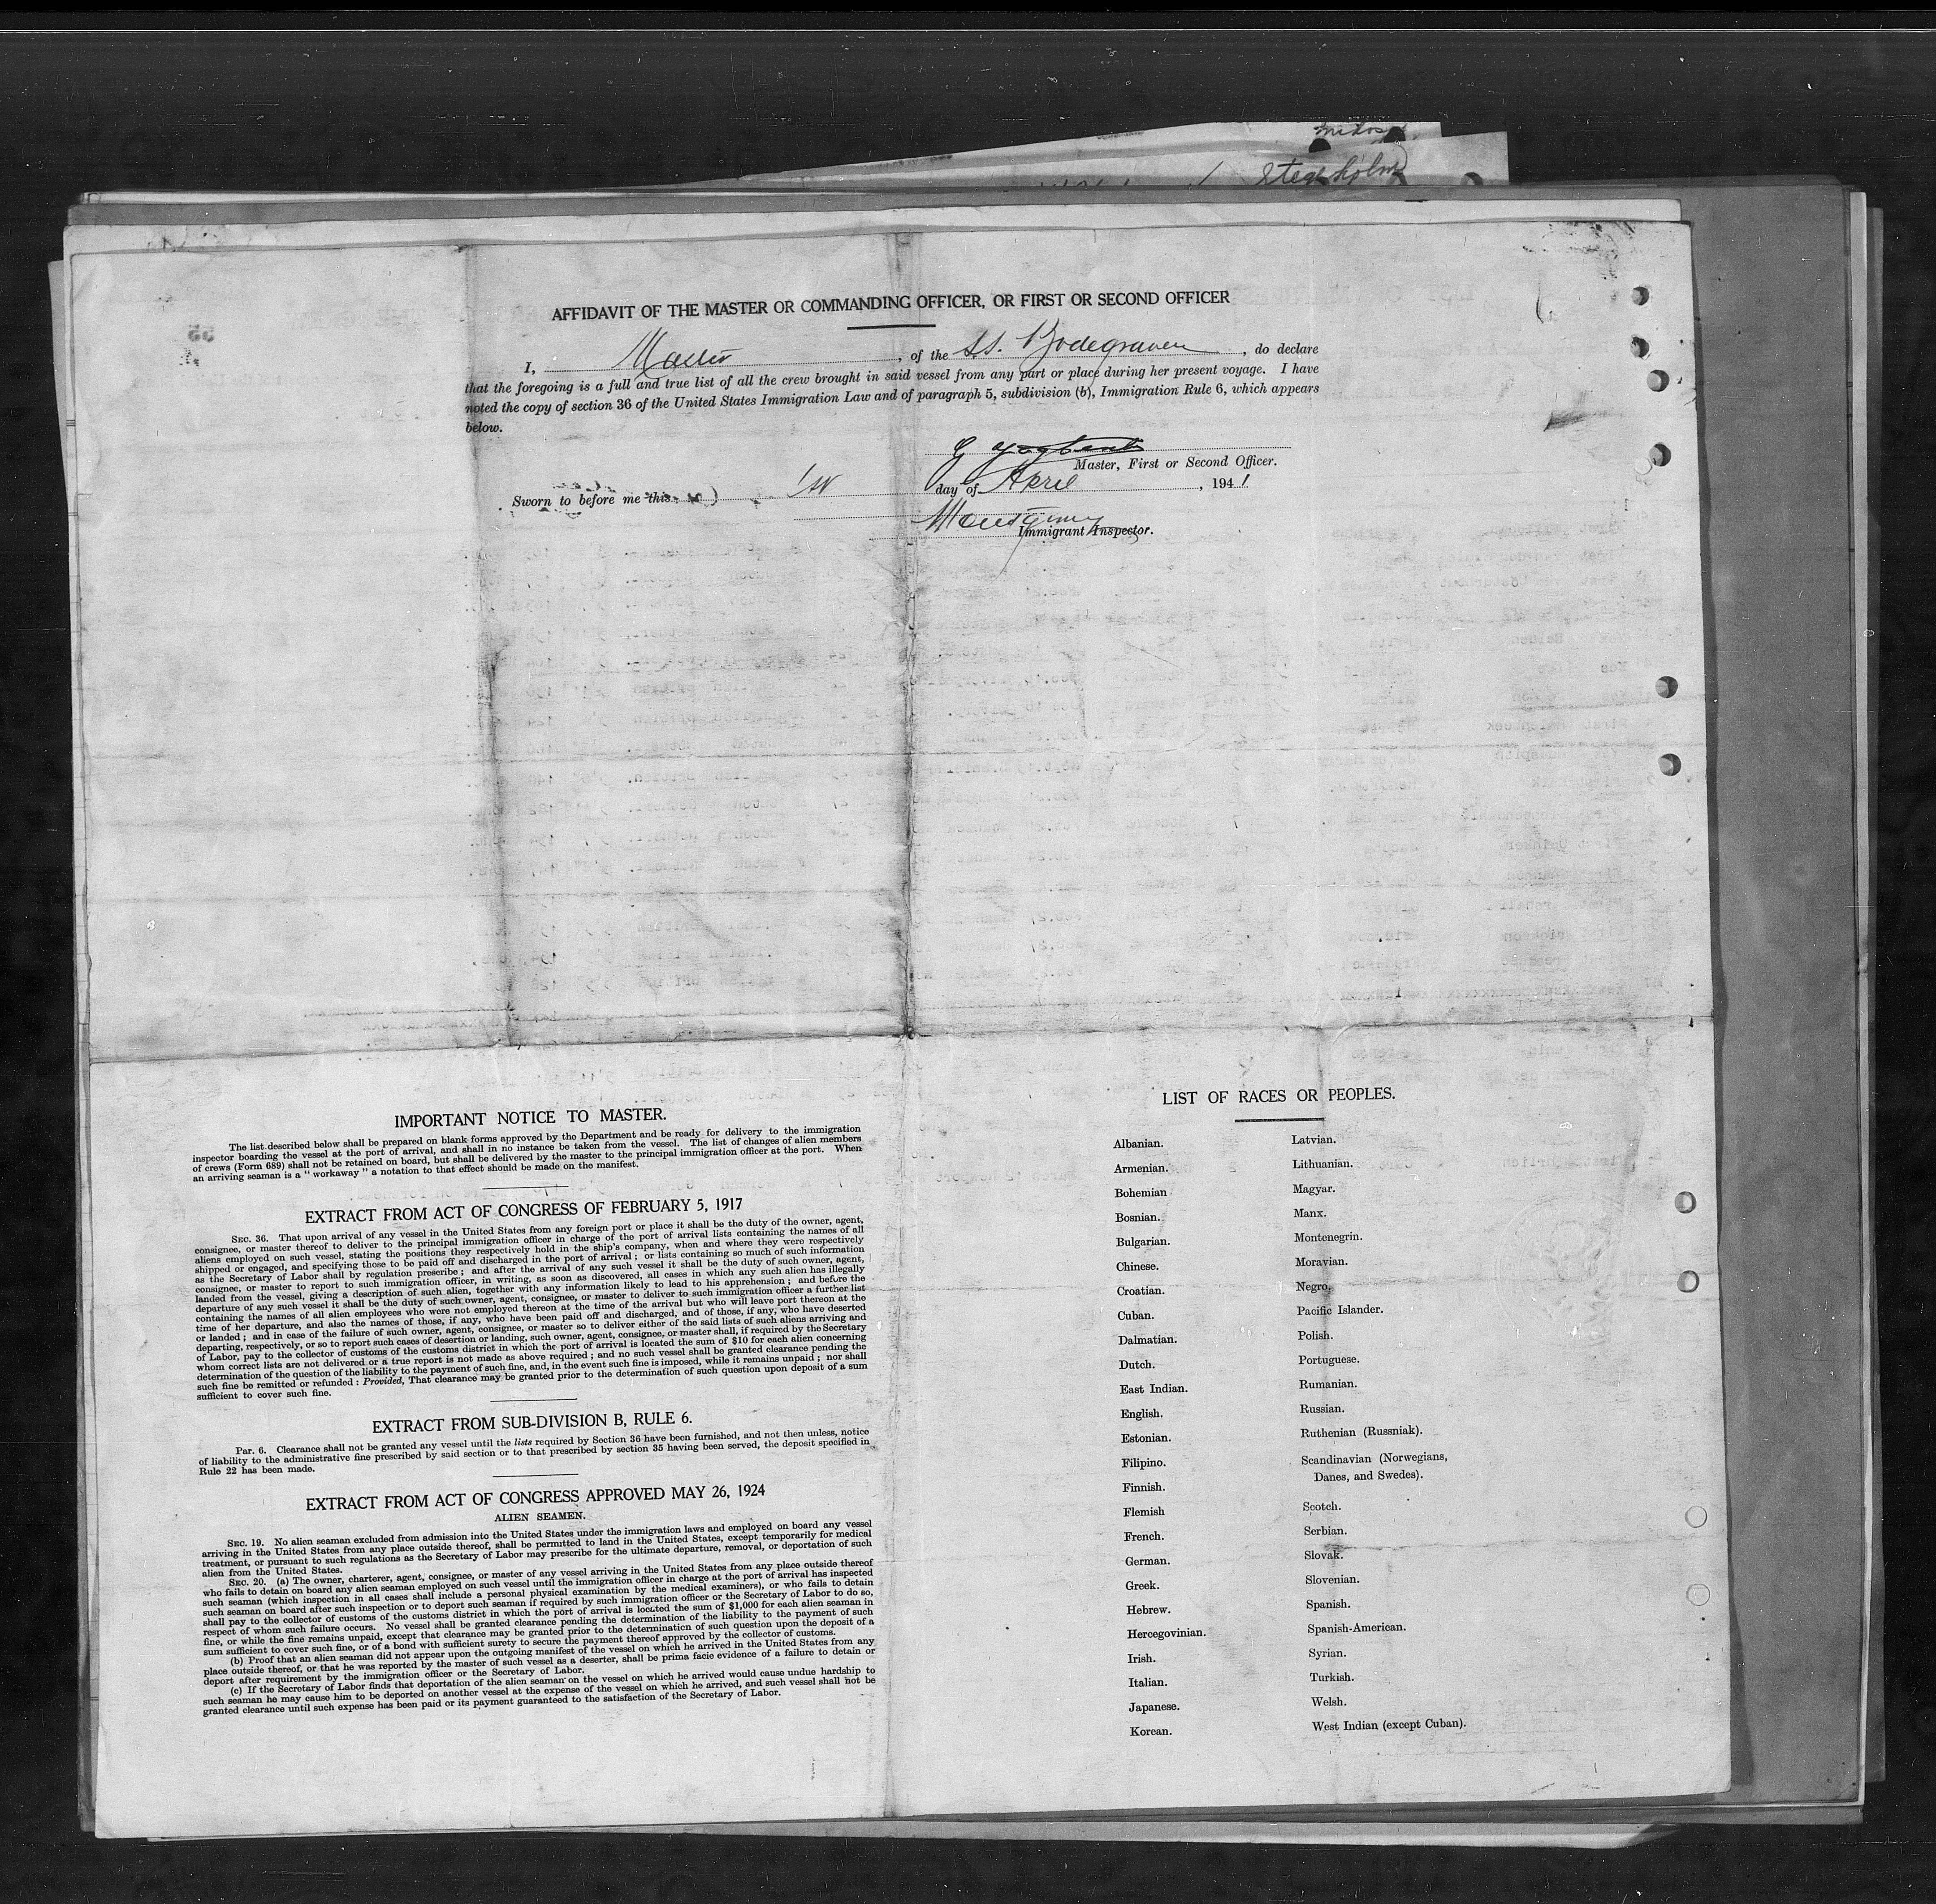 Stockholm
AFFIDAVIT OF THE MASTER OR COMMANDING OFFICER, OR FIRST OR SECOND OFFICER
I, Master, of the ss. Bodegraven, do declare
that the foregoing is a full and true list of all the crew brought in said vessel from any part or place during her present voyage. I have
noted the copy of section 36 of the United States Immigration Law and of paragraph 5, subdivision (b), Immigration Rule 6, which appears
below.
Master, First or Second Officer.
Sworn to before me this 1st day of April, 1941
Immigrant Inspector.
IMPORTANT NOTICE TO MASTER.
The list described below shall be prepared on blank forms approved by the Department and be ready for delivery to the immigration
inspector boarding the vessel at the port of arrival, and shall in no instance be taken from the vessel. The list of changes of alien members
of crews (Form 689) shall not be retained on board, but shall be delivered by the master to the principal immigration officer at the port. When
an arriving seaman is a “ workaway ” a notation to that effect should be made on the manifest.
EXTRACT FROM ACT OF CONGRESS OF FEBRUARY 5, 1917
SEC. 36. That upon arrival of any vessel in the United States from any foreign port or place it shall be the duty of the owner, agent,
consignee, or master thereof to deliver to the principal immigration officer in charge of the port of arrival lists containing the names of all
aliens employed on such vessel, stating the positions they respectively hold in the ship's company, when and where they were respectively
shipped or engaged, and specifying those to be paid off and discharged in the port of arrival ; or lists containing so much of such information
as the Secretary of Labor shall by regulation prescribe ; and after the arrival of any such vessel it shall be the duty of such owner, agent,
consignee, or master to report to such immigration officer, in writing, as soon as discovered, all cases in which any such alien has illegally
landed from the vessel, giving a description of such alien, together with any information likely to lead to his apprehension ; and before the
departure of any such vessel it shall be the duty of such owner, agent, consignee, or master to deliver to such immigration officer a further list
containing the names of all alien employees who were not employed thereon at the time of the arrival but who will leave port thereon at the
time of her departure, and also the names of those, if any, who have been paid off and discharged, and of those, if any, who have deserted
or landed ; and in case of the failure of such owner, agent, consignee, or master so to deliver either of the said lists of such aliens arriving and
departing, respectively, or so to report such cases of desertion or landing, such owner, agent, consignee, or master shall, if required by the Secretary
of Labor, pay to the collector of customs of the customs district in which the port of arrival is located the sum of $10 for each alien concerning
whom correct lists are not delivered or a true report is not made as above required ; and no such vessel shall be granted clearance pending the
determination of the question of the liability to the payment of such fine, and, in the event such fine is imposed, while it remains unpaid ; nor shall
such fine be remitted or refunded : Provided, That clearance may be granted prior to the determination of such question upon deposit of a sum
sufficient to cover such fine.
EXTRACT FROM SUB-DIVISION B, RULE 6.
Par. 6. Clearance shall not be granted any vessel until the lists required by Section 36 have been furnished, and not then unless, notice
of liability to the administrative fine prescribed by said section or to that prescribed by section 35 having been served, the deposit specified in
Rule 22 has been made.
EXTRACT FROM ACT OF CONGRESS APPROVED MAY 26, 1924
ALIEN SEAMEN.
SEC. 19. No alien seaman excluded from admission into the United States under the immigration laws and employed on board any vessel
arriving in the United States from any place outside thereof, shall be permitted to land in the United States, except temporarily for medical
treatment, or pursuant to such regulations as the Secretary of Labor may prescribe for the ultimate departure, removal, or deportation of such
alien from the United States.
SEC. 20. (a) The owner, charterer, agent, consignee, or master of any vessel arriving in the United States from any place outside thereof
who fails to detain on board any alien seaman employed on such vessel until the immigration officer in charge at the port of arrival has inspected
such seaman (which inspection in all cases shall include a personal physical examination by the medical examiners), or who fails to detain
such seaman on board after such inspection or to deport such seaman if required by such immigration officer or the Secretary of Labor to do so,
shall pay to the collector of customs of the customs district in which the port of arrival is located the sum of $1,000 for each alien seaman in
respect of whom such failure occurs. No vessel shall be granted clearance pending the determination of the liability to the payment of such
fine, or while the fine remains unpaid, except that clearance may be granted prior to the determination of such question upon the deposit of a
sum sufficient to cover such fine, or of a bond with sufficient surety to secure the payment thereof approved by the collector of customs.
(b) Proof that an alien seaman did not appear upon the outgoing manifest of the vessel on which he arrived in the United States from any
place outside thereof, or that he was reported by the master of such vessel as a deserter, shall be prima facie evidence of a failure to detain or
deport after requirement by the immigration officer or the Secretary of Labor.
(c) If the Secretary of Labor finds that deportation of the alien seaman on the vessel on which he arrived would cause undue hardship to
such seaman he may cause him to be deported on another vessel at the expense of the vessel on which he arrived, and such vessel shall not be
granted clearance until such expense has been paid or its payment guaranteed to the satisfaction of the Secretary of Labor.
LIST OF RACES OR PEOPLES.
Albanian.
Armenian.
Bohemian
Bosnian.
Bulgarian.
Chinese.
Croatian.
Cuban.
Dalmatian.
Dutch.
East Indian.
English.
Estonian.
Filipino.
Finnish.
Flemish
French.
German.
Greek.
Hebrew.
Hercegovinian.
Irish.
Italian.
Japanese.
Korean.
Latvian.
Lithuanian.
Magyar.
Manx.
Montenegrin.
Moravian.
Negro.
Pacific Islander.
Polish.
Portuguese.
Rumanian.
Russian.
Ruthenian (Russniak).
Scandinavian (Norwegians,
Danes, and Swedes).
Scotch.
Serbian.
Slovak.
Slovenian.
Spanish.
Spanish-American.
Syrian.
Turkish.
Welsh.
West Indian (except Cuban).